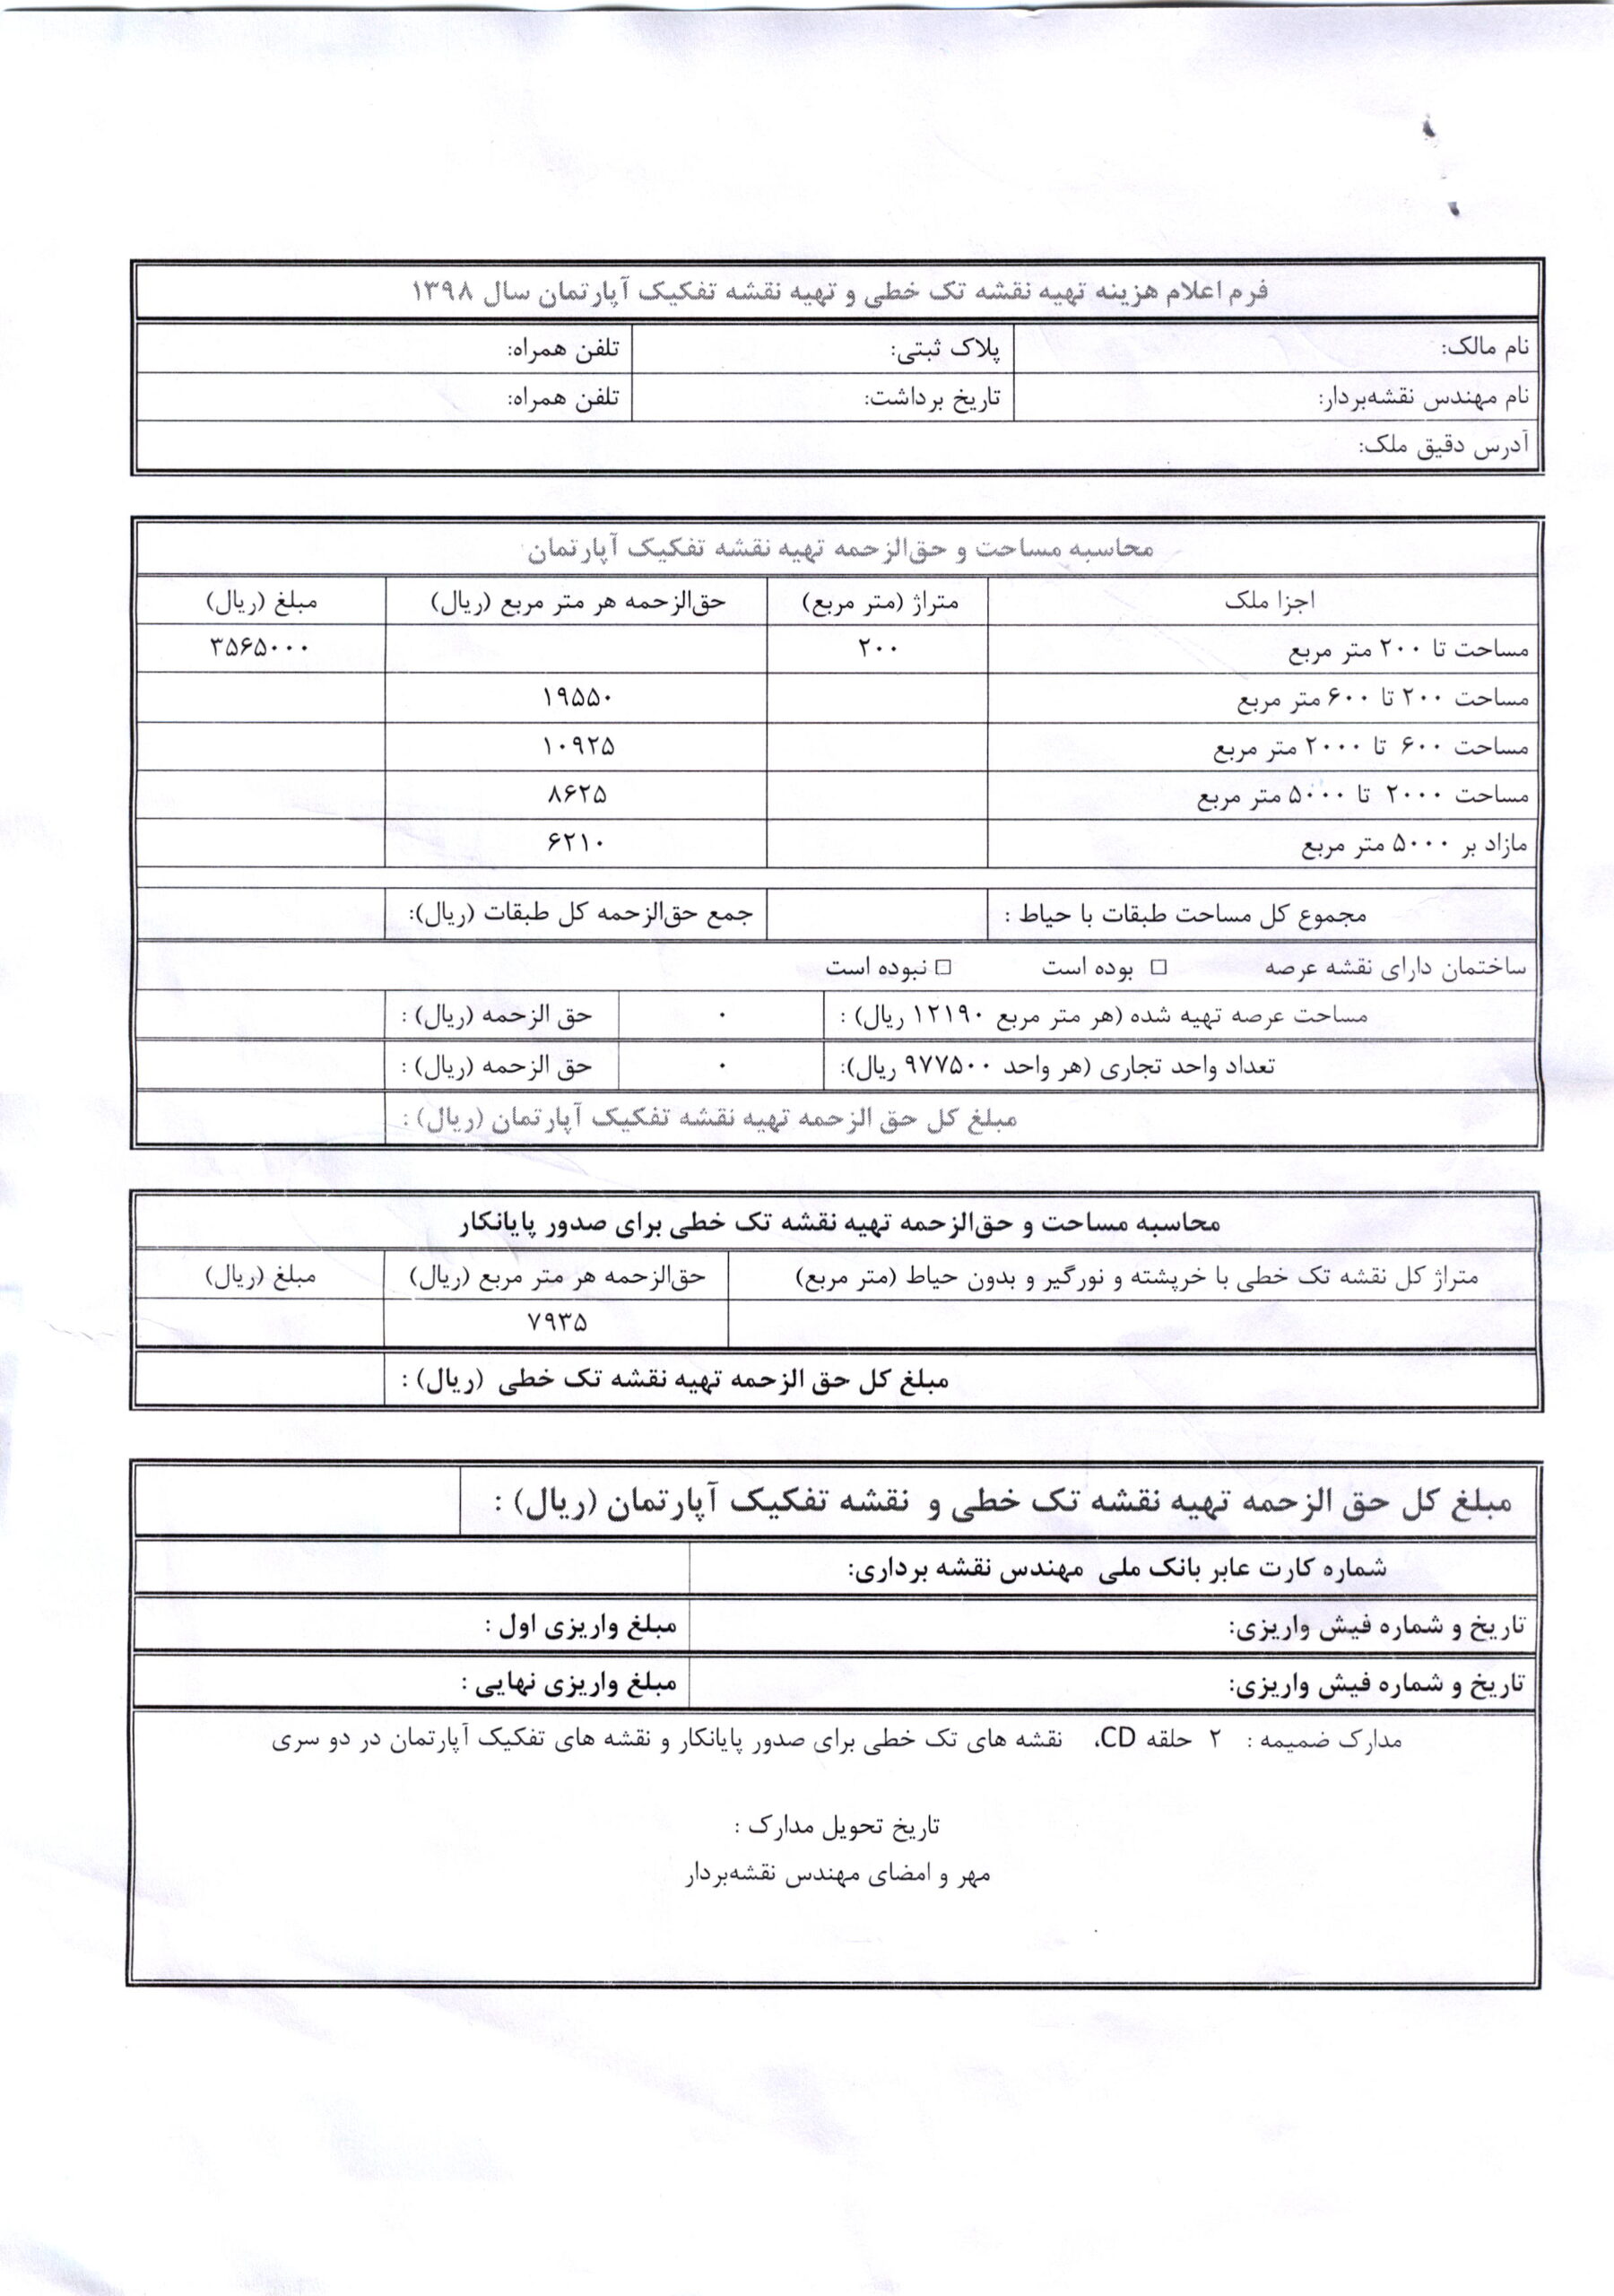 فرم اعلام هزینه تهیه نقشه تک خطی و تهیه نقشه تفکیک آپارتمان سال ۱۳۹۸
نام مالک: پلاک ثبتی: تلفن همراه:
نام مهندس نقشه‌بردار: تاریخ برداشت: تلفن همراه:
آدرس دقیق ملک:
محاسبه مساحت و حق‌الزحمه تهیه نقشه تفکیک آپارتمان
اجزا ملک متراژ (متر مربع) حق‌الزحمه هر متر مربع (ریال) مبلغ (ریال)
مساحت تا ۲۰۰ متر مربع ۲۰۰ ۳۵۶۵۰۰۰
مساحت ۲۰۰ تا ۶۰۰ متر مربع ۱۹۵۵۰
مساحت ۶۰۰ تا ۲۰۰۰ متر مربع ۱۰۹۲۵
مساحت ۲۰۰۰ تا ۵۰۰۰ متر مربع ۸۶۲۵
مازاد بر ۵۰۰۰ متر مربع ۶۲۱۰
مجموع کل مساحت طبقات با حیاط : جمع حق‌الزحمه کل طبقات (ریال):
ساختمان دارای نقشه عرصه □ بوده است □ نبوده است
مساحت عرصه تهیه شده (هر متر مربع ۱۲۱۹۰ ریال) : ۰ حق الزحمه (ریال) :
تعداد واحد تجاری (هر واحد ۹۷۷۵۰۰ ریال): ۰ حق الزحمه (ریال) :
مبلغ کل حق الزحمه تهیه نقشه تفکیک آپارتمان (ریال) :
محاسبه مساحت و حق‌الزحمه تهیه نقشه تک خطی برای صدور پایانکار
متراژ کل نقشه تک خطی با خرپشته و نورگیر و بدون حیاط (متر مربع) حق‌الزحمه هر متر مربع (ریال) مبلغ (ریال)
۷۹۳۵
مبلغ کل حق الزحمه تهیه نقشه تک خطی (ریال) :
مبلغ کل حق الزحمه تهیه نقشه تک خطی و نقشه تفکیک آپارتمان (ریال) :
شماره کارت عابر بانک ملی مهندس نقشه برداری:
تاریخ و شماره فیش واریزی: مبلغ واریزی اول :
تاریخ و شماره فیش واریزی: مبلغ واریزی نهایی :
مدارک ضمیمه : ۲ حلقه CD، نقشه های تک خطی برای صدور پایانکار و نقشه های تفکیک آپارتمان در دو سری
تاریخ تحویل مدارک :
مهر و امضای مهندس نقشه‌بردار